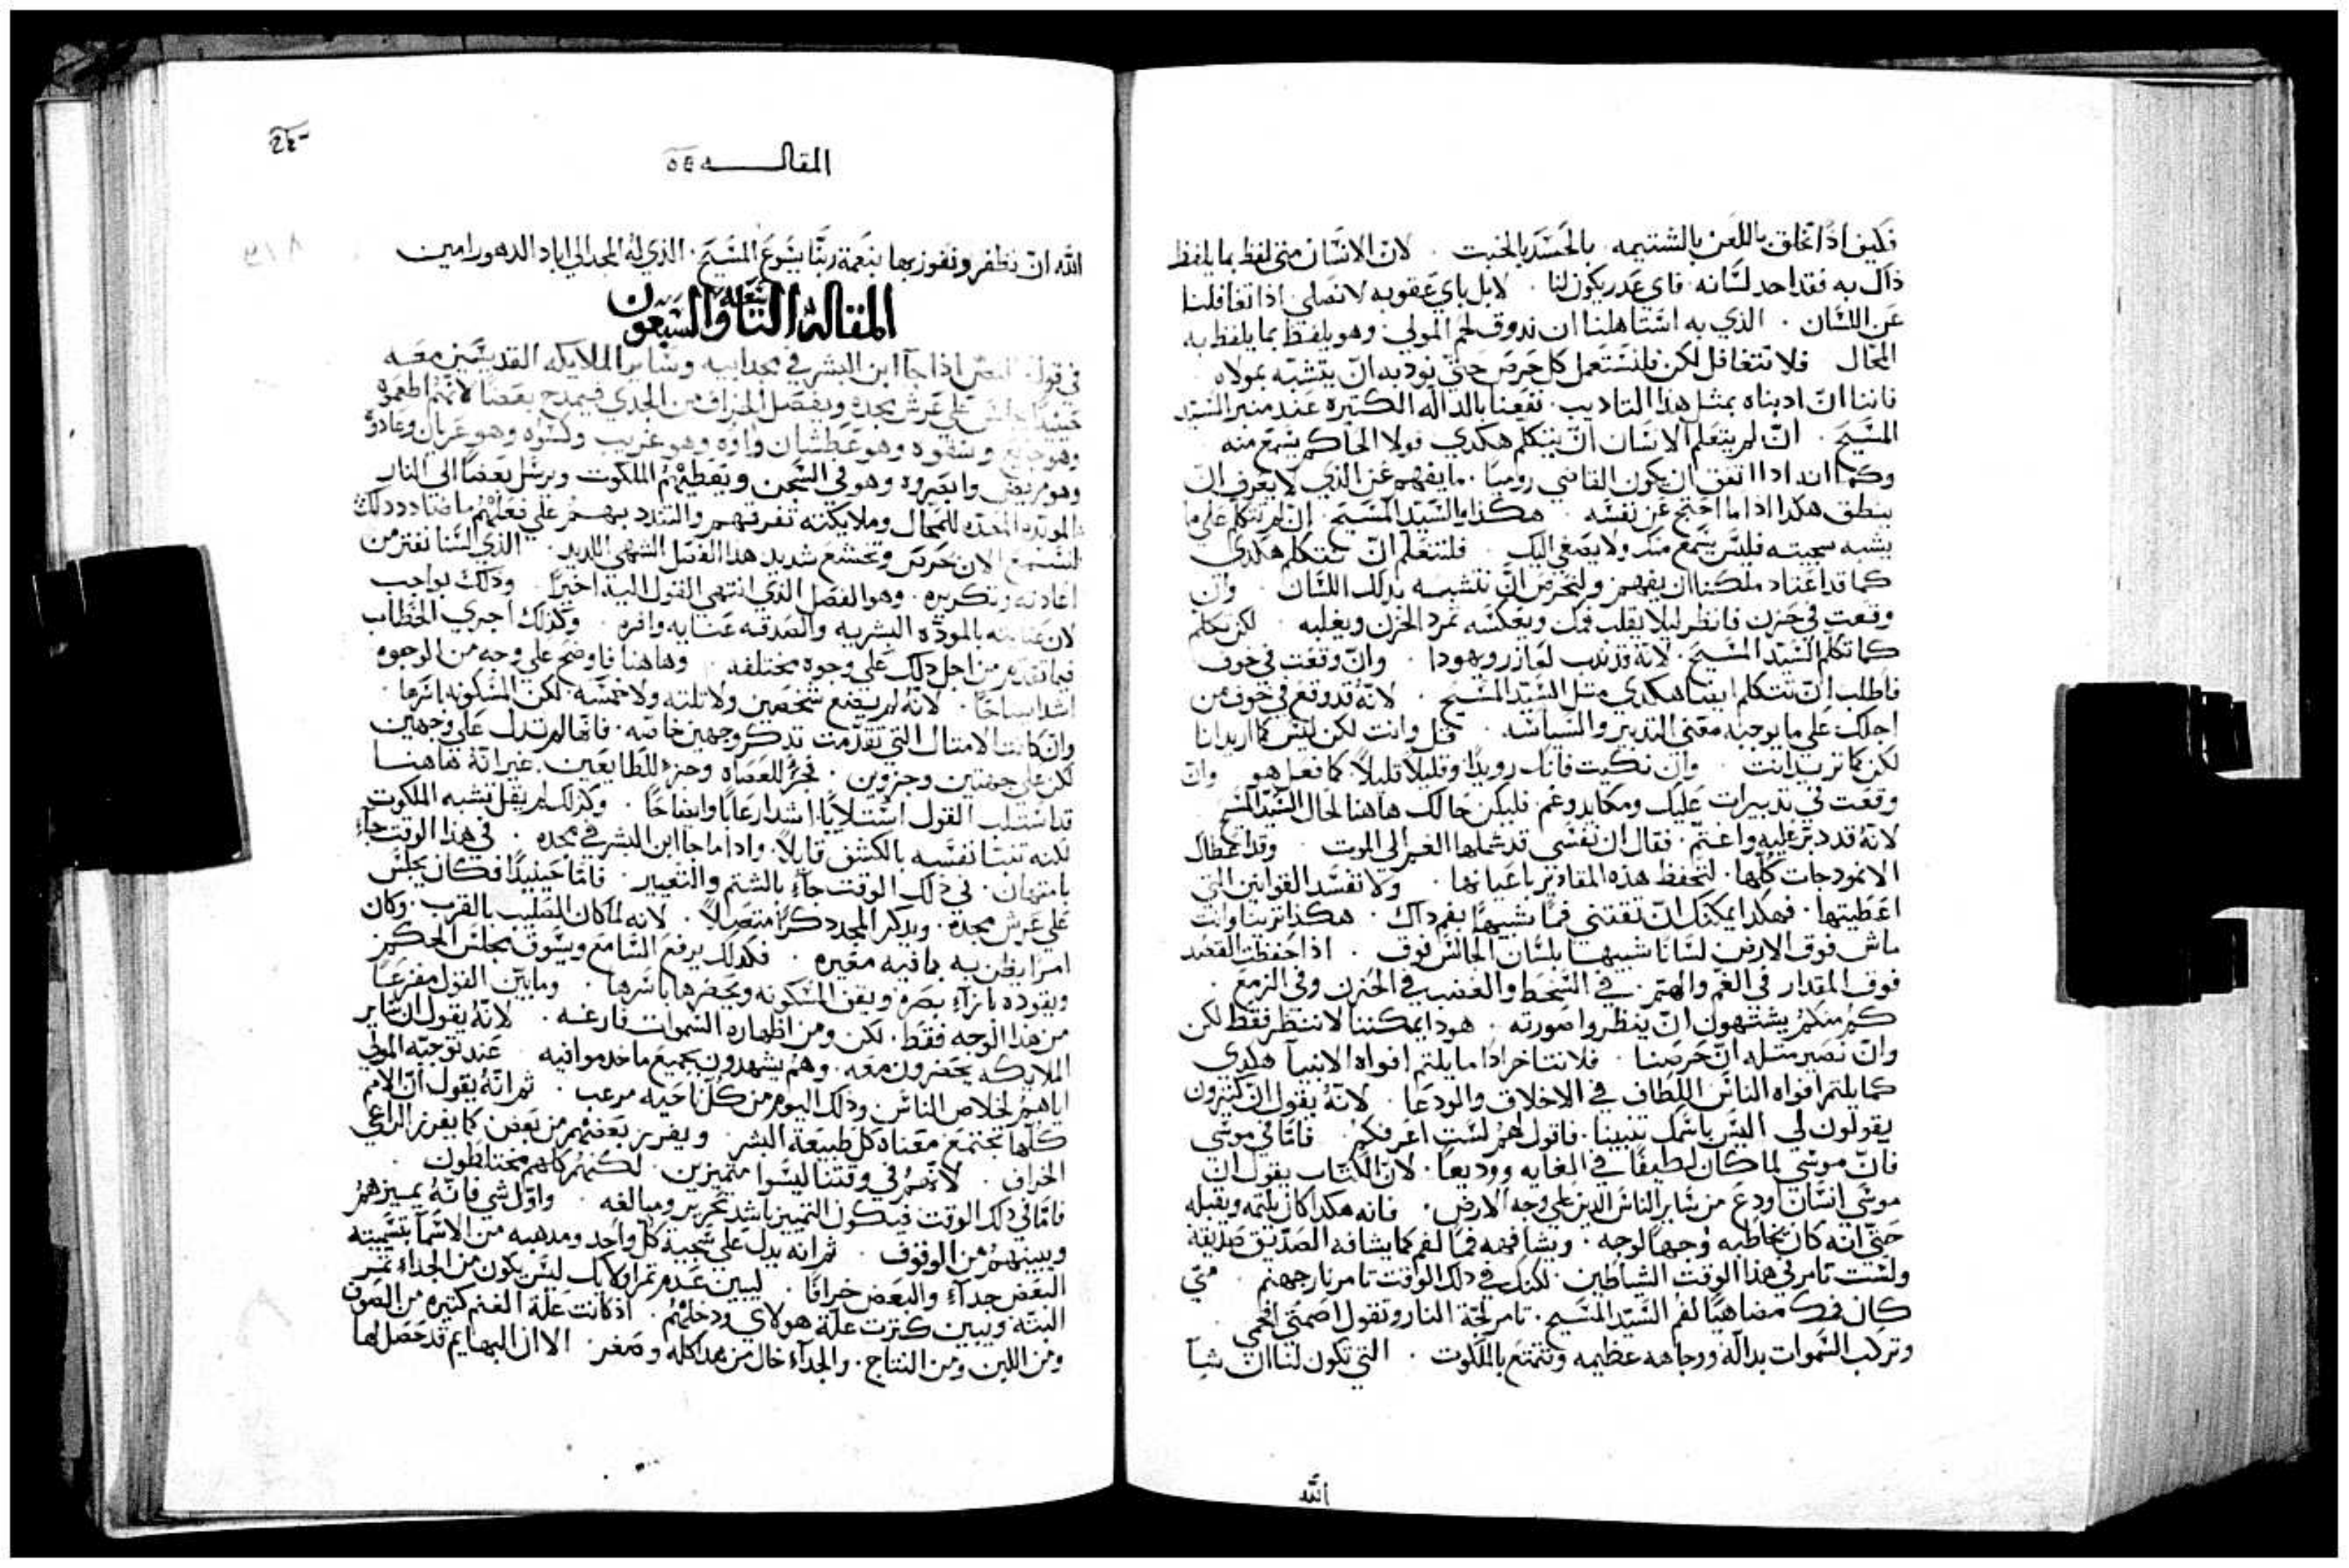 فكيف اذا انخلق باللعن بالشتيمه بالحسد بالخبت . لان الانسان متى لفظ بما يلفظ
ذاك به فقد احد لسانه فاي عدر يكون لنا . لابل باي عقوبه لا نصلي اذا تغافلنا
عن اللسان . الذي به استاهلنا ان ندوق لحم المولي . وهو يلفظ بما يلفظ به
المحال فلا نتغافل لكن فلنستعمل كل حرص حتي نودبه ان يتشبه بمولاه
فاننا ان ادبناه بمثل هدا التاديب . نفعنا بالداله الكتيره عند منبر السيد
المسيح . ان لم يتعلم الانسان ان يتكلم هكدي فولا الحاكم يسمع منه
وكما انه ادا اتفق ان يكون القاضي روميا . ما يفهم عن الذي لا يعرف ان
ينطق هكدا اداما احتج عن نفسه . هكذا يا السيد المسيح . ان لم تتكلم علي ما
يشبه سجيته فليس يسمع منك ولا يصغي اليك . فلنتعلم ان نتكلم هكدي
كما قد اعتاد ملكنا ان يفهم ولنحرص ان نتشبه بدلك اللسان . وان
وقعت في حزن فانظر ليلا يقلب فمك ويعكسه تمرد الحزن ويغلبه . لكن تكلم
كما تكلم السيد المسيح . لانه قد ندب لعازر ويهودا . وان وقعت في خوف
فاطلب ان تتكلم ايضا هكدي متل السيد المسيح . لانه قد وقع في خوف من
اجلك علي ما يوجبه معني التدبير والسياسه . فقل وانت لكن ليس كما اريد انا
لكن كما تريد انت . وان بكيت فابك رويدا وقليلا قليلا . كما فعل هو وان
وقعت في تدبيرات عليك ومكايد وغم . فليكن حالك هاهنا لحال السيد المسيح
لانه قد دبر عليه واغتم . فقال ان نفسي قد شملها الغم الي الموت . وقد اعطاك
الانمودجات كلها . لتحفظ هذه المقادير باعيانها . ولا تفسد القوانين التي
اعطيتها . فهكدا يمكنك ان تقتني فما شبيها بفم داك . هكذا تربنا وانت
ماش فوق الارض لسانا شبيها بلسان الجالس فوق . اذا حفظت القصد
فوق المقدار في الغم والهم . في السخط والغضب في الحزن وفي الزمع .
كم منكم يشتهون ان ينظروا صورته . هودا يمكننا لا ننظر فقط لكن
وان نصير متله ان حرصنا . فلا نتاخر ادا ما يلتم افواه الانبيا هكدي
كما يلتم افواه الناس اللطاف في الاخلاق والودعا . لانه يقول ان كتيرون
يقولون لي اليس باسمك تنبينا . فاقول لهم لست اعرفكم . فاما في موسي
فان موسي لما كان لطيفا في الغايه ووديعا . لان الكتاب يقول ان
موسي انسان اودع من ساير الناس الدين علي وجه الارض . فانه هكدا كان يلتمه ويقبله
حتي انه كان يخاطبه وجها لوجه . ويشافهه فما لفم كما يشافه الصديق صديقه
ولست تامر في هذا الوقت الشياطين . لكنك في دلك الوقت تامر نار جهنم . متي
كان فمك مضاهيا لفم السيد المسيح . تامر لجة النار وتقول اصمتي
وتركب السموات بدالة ووجاهه عظيمه وتتمتع بالملكوت . التي تكون لنا ان شا
الله
المقاله
الله ان نظفر ونفوز بها بنعمة ربنا يسوع المسيح . الذي له المجد الي اباد الدهور امين
المقالة التاسعة والسبعون
في قوله اذا جا ابن البشر في مجد ابيه وساير الملايكه القديسين معه
حينيدا يجلس علي عرش مجده ويفصل الخراف من الجدي فيمدح بعضا لانهم اطعموه
وهو جايع وسقوه وهو عطشان واوه وهو غريب وكسوه وهو عريان وعادوه
وهو مريض وابصروه وهو في السجن ويعطيهم الملكوت ويرسل بعضا الي النار
الموبده المعده للمحال وملايكته تفرقهم والتندد بهم علي فعلهم ما ضادد دلك
لنستمع الان بحرص وتخشع شديد هدا الفصل الشهي اللديد . الذي لسنا نفتر من
اعادته وتكريره . وهو الفصل الذي انتهي القول اليه اخيرا . وذلك بواجب
لان عنايته بالموده البشريه والصدقه عنايه وافره . وكذلك اجري الخطاب
فيما تقدم من اجل دلك علي وجوه مختلفه . وهاهنا فاوضح علي وجه من الوجوه
اشد ايضاحا . لانه لم يضع شخصين ولا تلته ولا خمسه . لكن المسكونه باسرها .
وان كانت الامتال التي تقدمت تدكر وجهين خاصه . فانها لم تدل علي وجهين
لكن علي جهتين وجزوين . فجزء للعصاه وجزء للطايعين . غير انه هاهنا
قد استلب القول استلابا اشد ارعابا وايضاحا . وكدلك لم يقل تشبه الملكوت
لكنه تنشا نفسه بالكشف قايلا . واداما جا ابن البشر في مجده . في هذا الوقت جاء
بامتهان . في ذلك الوقت جاء بالشتم والتعيير . فاما حينيدا فكان يجلس
علي عرش مجده . ويدكر المجد دكرا متصلا . لانه لما كان الصليب بالقرب . وكان
امرا يظن به بما فيه معيره . فكدلك يرفع السامع ويسوق مجلس الحكم
ويقوده بازاء بصره ويقف المسكونه ويحضرها باسرها . وما بين القول مفزعا
من هدا الوجه فقط . لكن ومن اظهاره السموات فارغه . لانه يقول ان ساير
الملايكه يحضرون معه . وهم يشهدون بجميع ما خدموا فيه . عند توجيه المولي
اياهم لخلاص الناس . وذلك اليوم من كل ناحيه مرعب . تم انه يقول ان الامم
كلها تجتمع معناه كل طبيعة البشر . ويفرز بعضهم من بعض كما يفرز الراعي
الخراف . لانهم في وقتنا ليسوا متميزين . لكنهم كلهم مختلطون .
فاما في دلك الوقت فيكون التمييز باشد تحرير ومبالغه . واول شي فانه يميزهم
ويبينهم من الوقوف . تم انه يدل علي سجية كل واحد ومدهبه من الاسما بتسميته
البعض جداء والبعض خرافا . ليبين عدم تمر اوليك ليس يكون من الجداء تمر
البته ويبين كترت غلة هولاي ودخلهم . اذ كانت غلة الغنم كتيره من الصوف
ومن اللبن ومن النتاج . والجداء خال من هدا كله وصفر . الا ان البهايم قد حصل لها